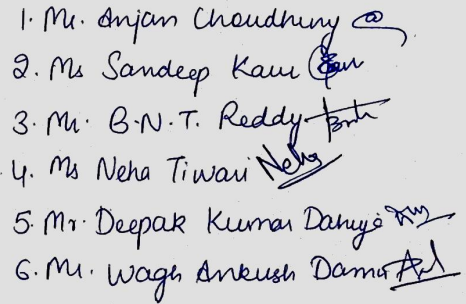 1. Mr. Anjan Choudhury
2. Ms Sandeep Kaur
3. Mr. B.N.T. Reddy
4. Ms Neha Tiwari Neha
5. Mr. Deepak Kumar
6. Mr. Wagh Ankush